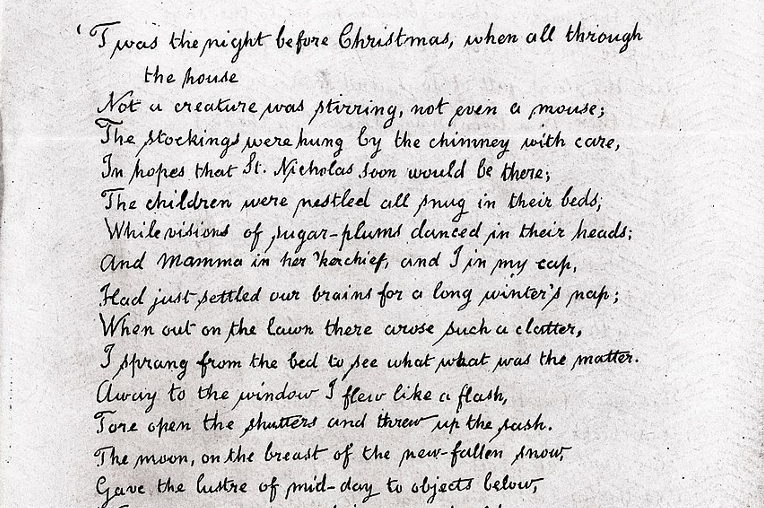 'Twas the night before Christmas, when all through
the house
Not a creature was stirring, not even a mouse;
The stockings were hung by the chimney with care,
In hopes that St. Nicholas soon would be there;
The children were nestled all snug in their beds;
While visions of sugar-plums danced in their heads;
And Mamma in her 'kerchief, and I in my cap,
Had just settled our brains for a long winter's nap;
When out on the lawn there arose such a clatter,
I sprang from the bed to see what what was the matter.
Away to the window I flew like a flash,
Tore open the shutters and threw up the sash.
The moon, on the breast of the new-fallen snow,
Gave the lustre of mid-day to objects below,